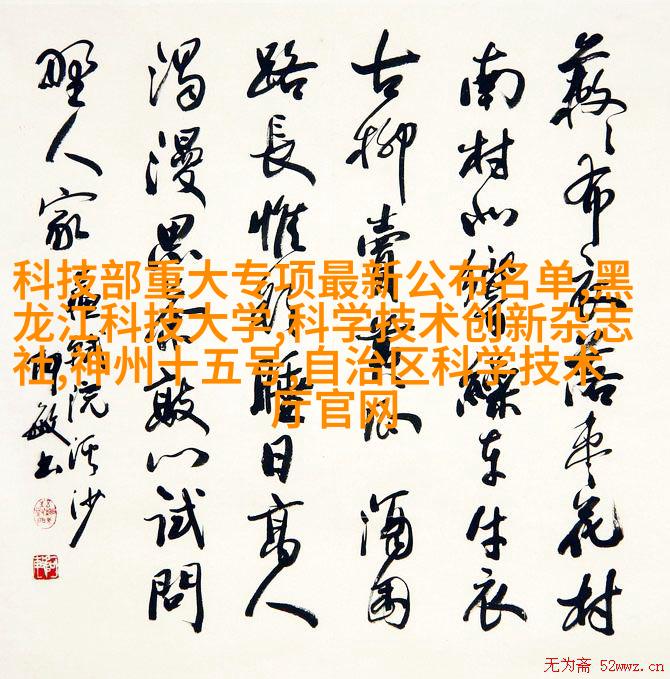 科技部重大专项最新公布名单,黑
龙江科技大学,科学技术创新杂志
社,神州十五号,自治区科学技术
厅官网
蔌〻布衣落枣花村
南村北响缲车牛衣
古柳賣黄瓜 酒困
路長惟欲睡日高人
渴漫思茶敲门试問
野人家 苏轼浣溪沙
敏书
无为斋 52wwz.cn